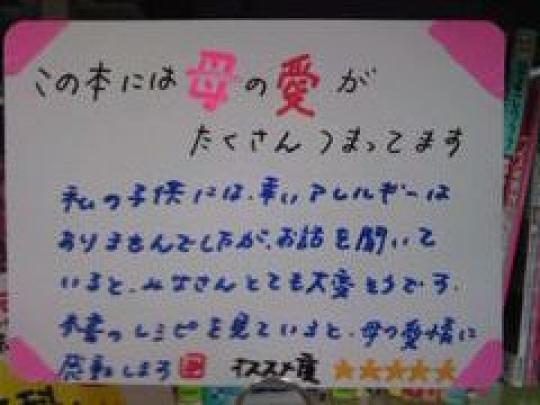 この本には母の愛が
たくさんつまってます
私の子供には、重いアレルギーは
ありませんでしたが、お話を聞いて
いると、みなさんとても大変そうです。
本書のレシピを見ていると、母の愛情に
感動します
オススメ度 ★★★★★